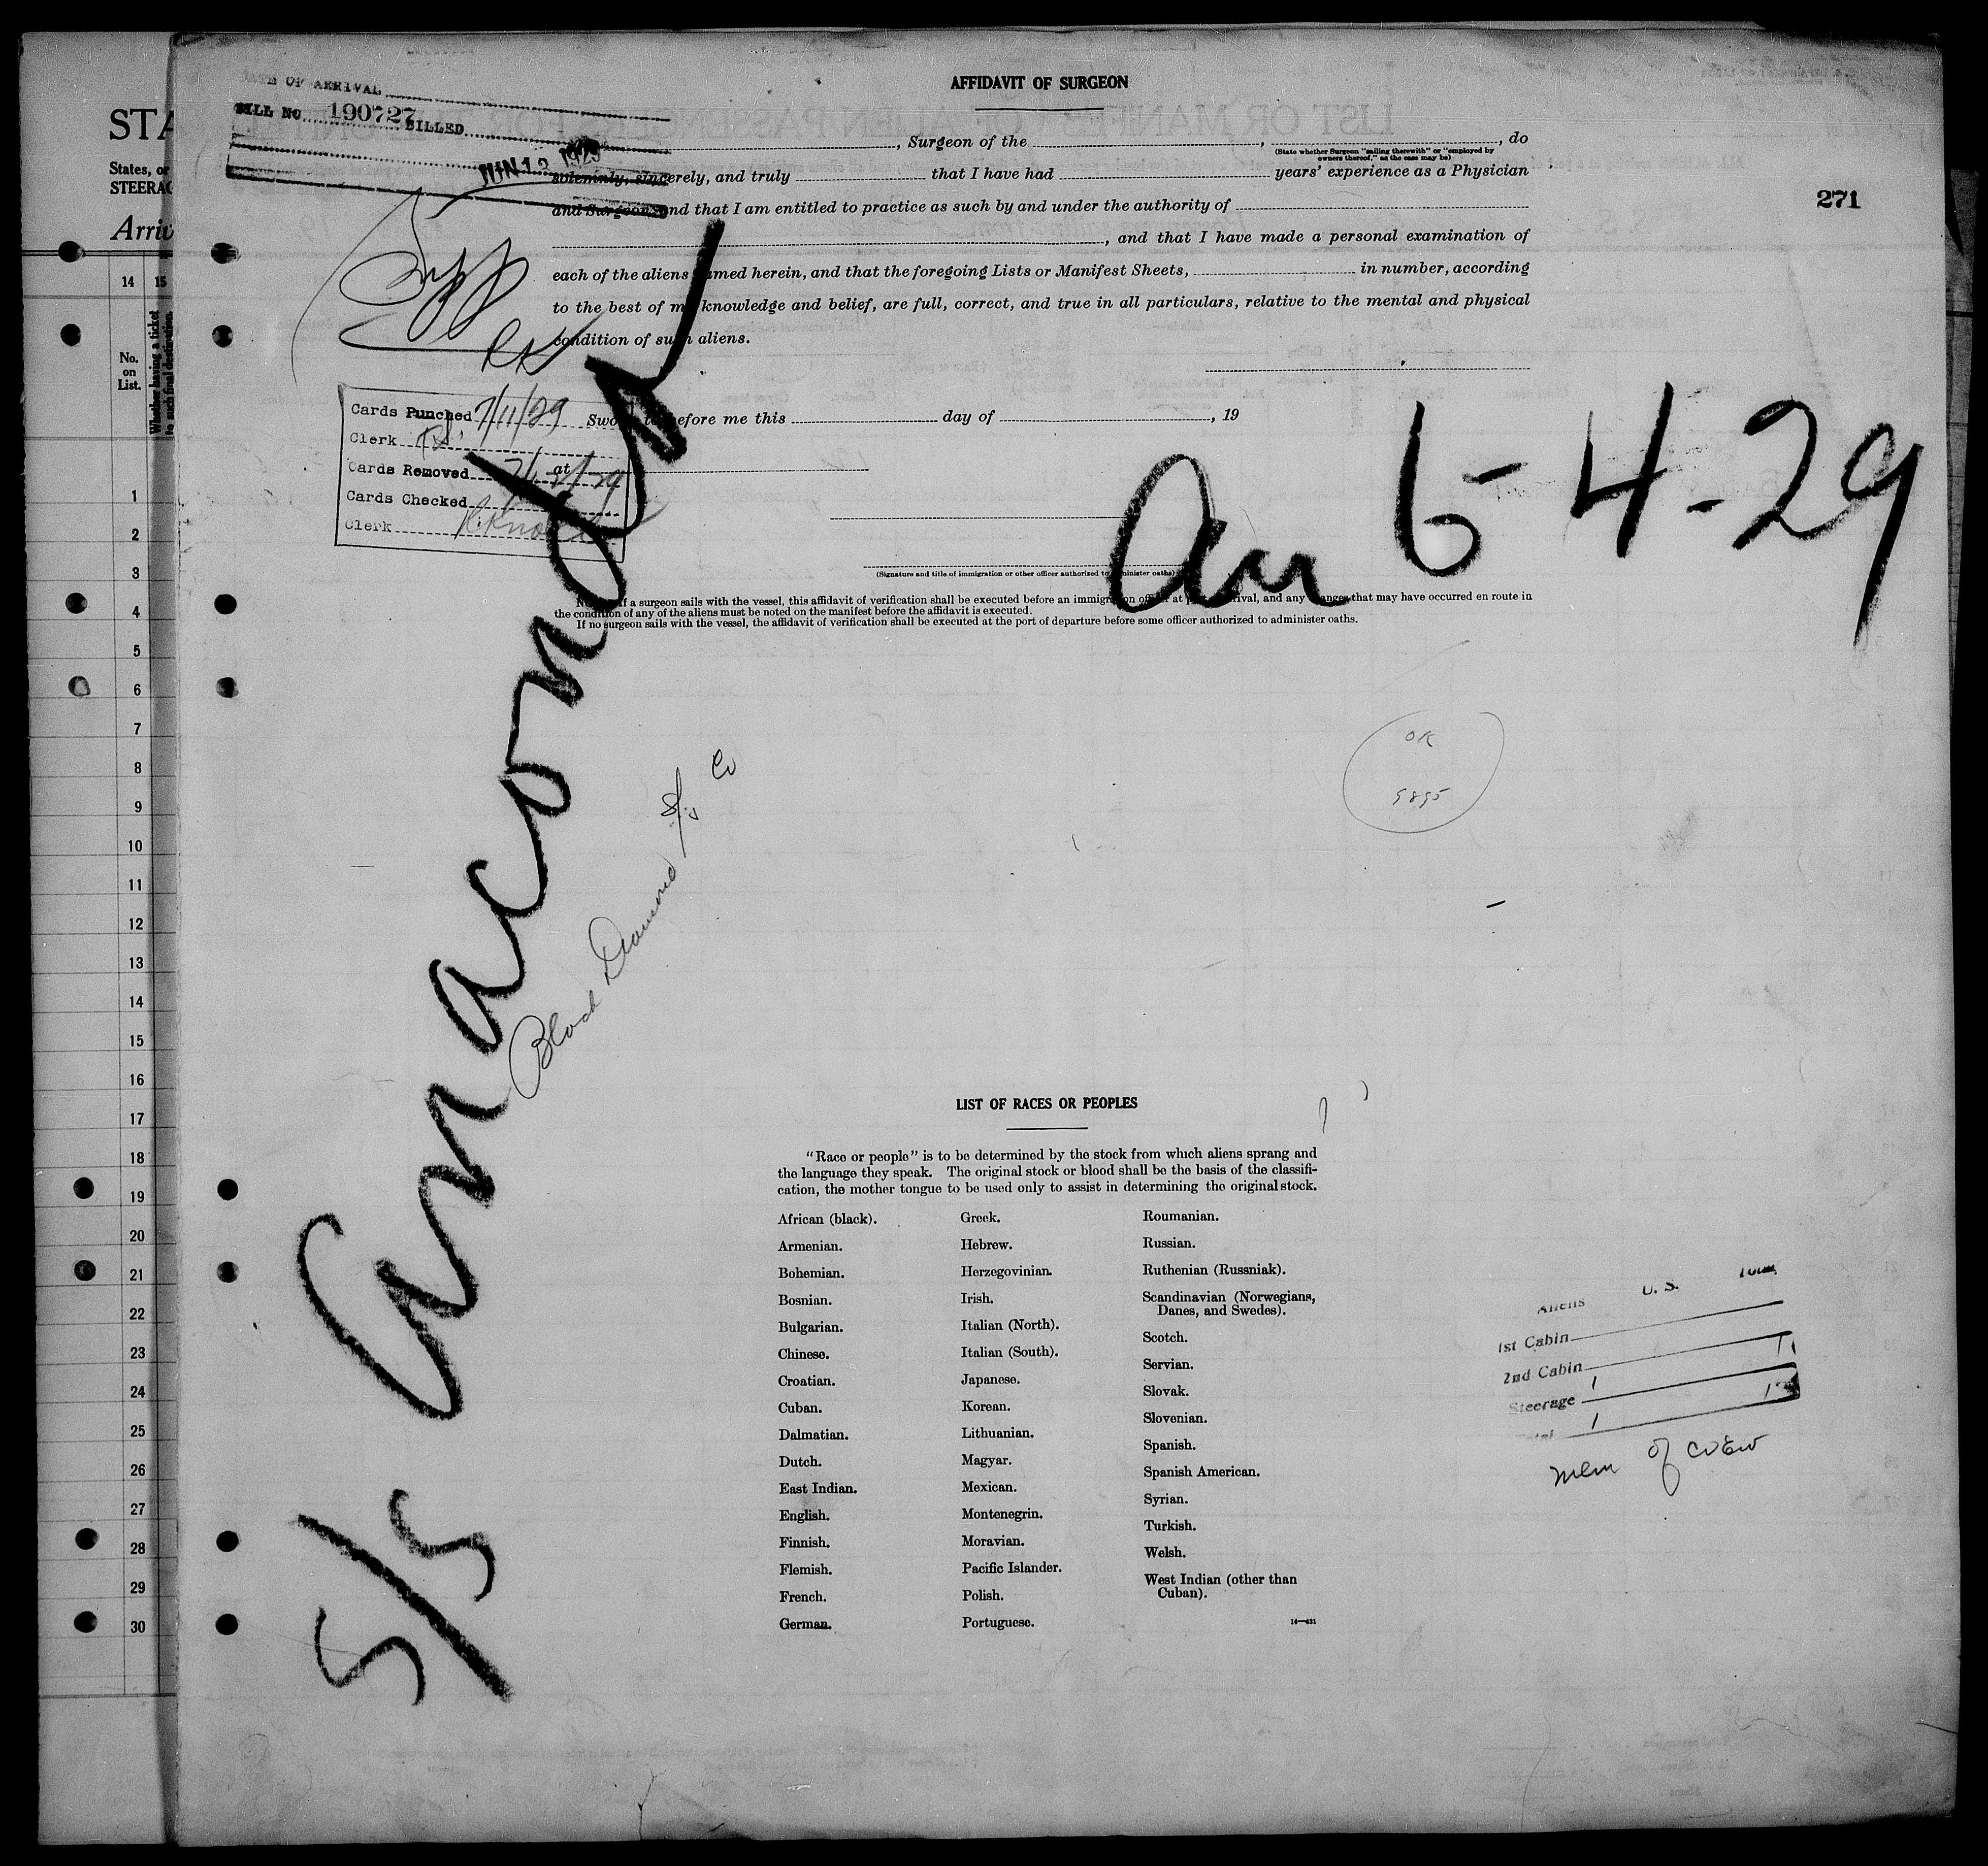 STA
States, or
STEERAG
Arriv
14 15
No.
on
List.
Whether having a ticket
to such final destination
1
2
3
4
5
6
7
8
9
10
11
12
13
14
15
16
17
18
19
20
21
22
23
24
25
26
27
28
29
30
DATE OF ARRIVAL
BILL NO. 190727 BILLED
JUN 12 1929
AFFIDAVIT OF SURGEON
, Surgeon of the , , do
(State whether Surgeon "sailing therewith" or "employed by
owners thereof," as the case may be)
solemnly, sincerely, and truly that I have had years' experience as a Physician
and Surgeon, and that I am entitled to practice as such by and under the authority of
, and that I have made a personal examination of
each of the aliens named herein, and that the foregoing Lists or Manifest Sheets, in number, according
to the best of my knowledge and belief, are full, correct, and true in all particulars, relative to the mental and physical
condition of such aliens.
271
Supp
Cards Punched 7/11/29
Clerk
Cards Removed
Cards Checked
Clerk
Sworn to before me this day of , 19
at
(Signature and title of immigration or other officer authorized to administer oaths)
NOTE.—If a surgeon sails with the vessel, this affidavit of verification shall be executed before an immigration officer at port of arrival, and any changes that may have occurred en route in
the condition of any of the aliens must be noted on the manifest before the affidavit is executed.
If no surgeon sails with the vessel, the affidavit of verification shall be executed at the port of departure before some officer authorized to administer oaths.
S/S Anaconda
Arr 6-4-29
Black Diamond S/S Co
OK
5895
LIST OF RACES OR PEOPLES
"Race or people" is to be determined by the stock from which aliens sprang and
the language they speak. The original stock or blood shall be the basis of the classifi-
cation, the mother tongue to be used only to assist in determining the original stock.
African (black).
Armenian.
Bohemian.
Bosnian.
Bulgarian.
Chinese.
Croatian.
Cuban.
Dalmatian.
Dutch.
East Indian.
English.
Finnish.
Flemish.
French.
German.
Greek.
Hebrew.
Herzegovinian.
Irish.
Italian (North).
Italian (South).
Japanese.
Korean.
Lithuanian.
Magyar.
Mexican.
Montenegrin.
Moravian.
Pacific Islander.
Polish.
Portuguese.
Roumanian.
Russian.
Ruthenian (Russniak).
Scandinavian (Norwegians,
Danes, and Swedes).
Scotch.
Servian.
Slovak.
Slovenian.
Spanish.
Spanish American.
Syrian.
Turkish.
Welsh.
West Indian (other than
Cuban).
14—431
Aliens U. S. Total
1st Cabin
2nd Cabin 1 1
Steerage
Total 1 1
mem of crew